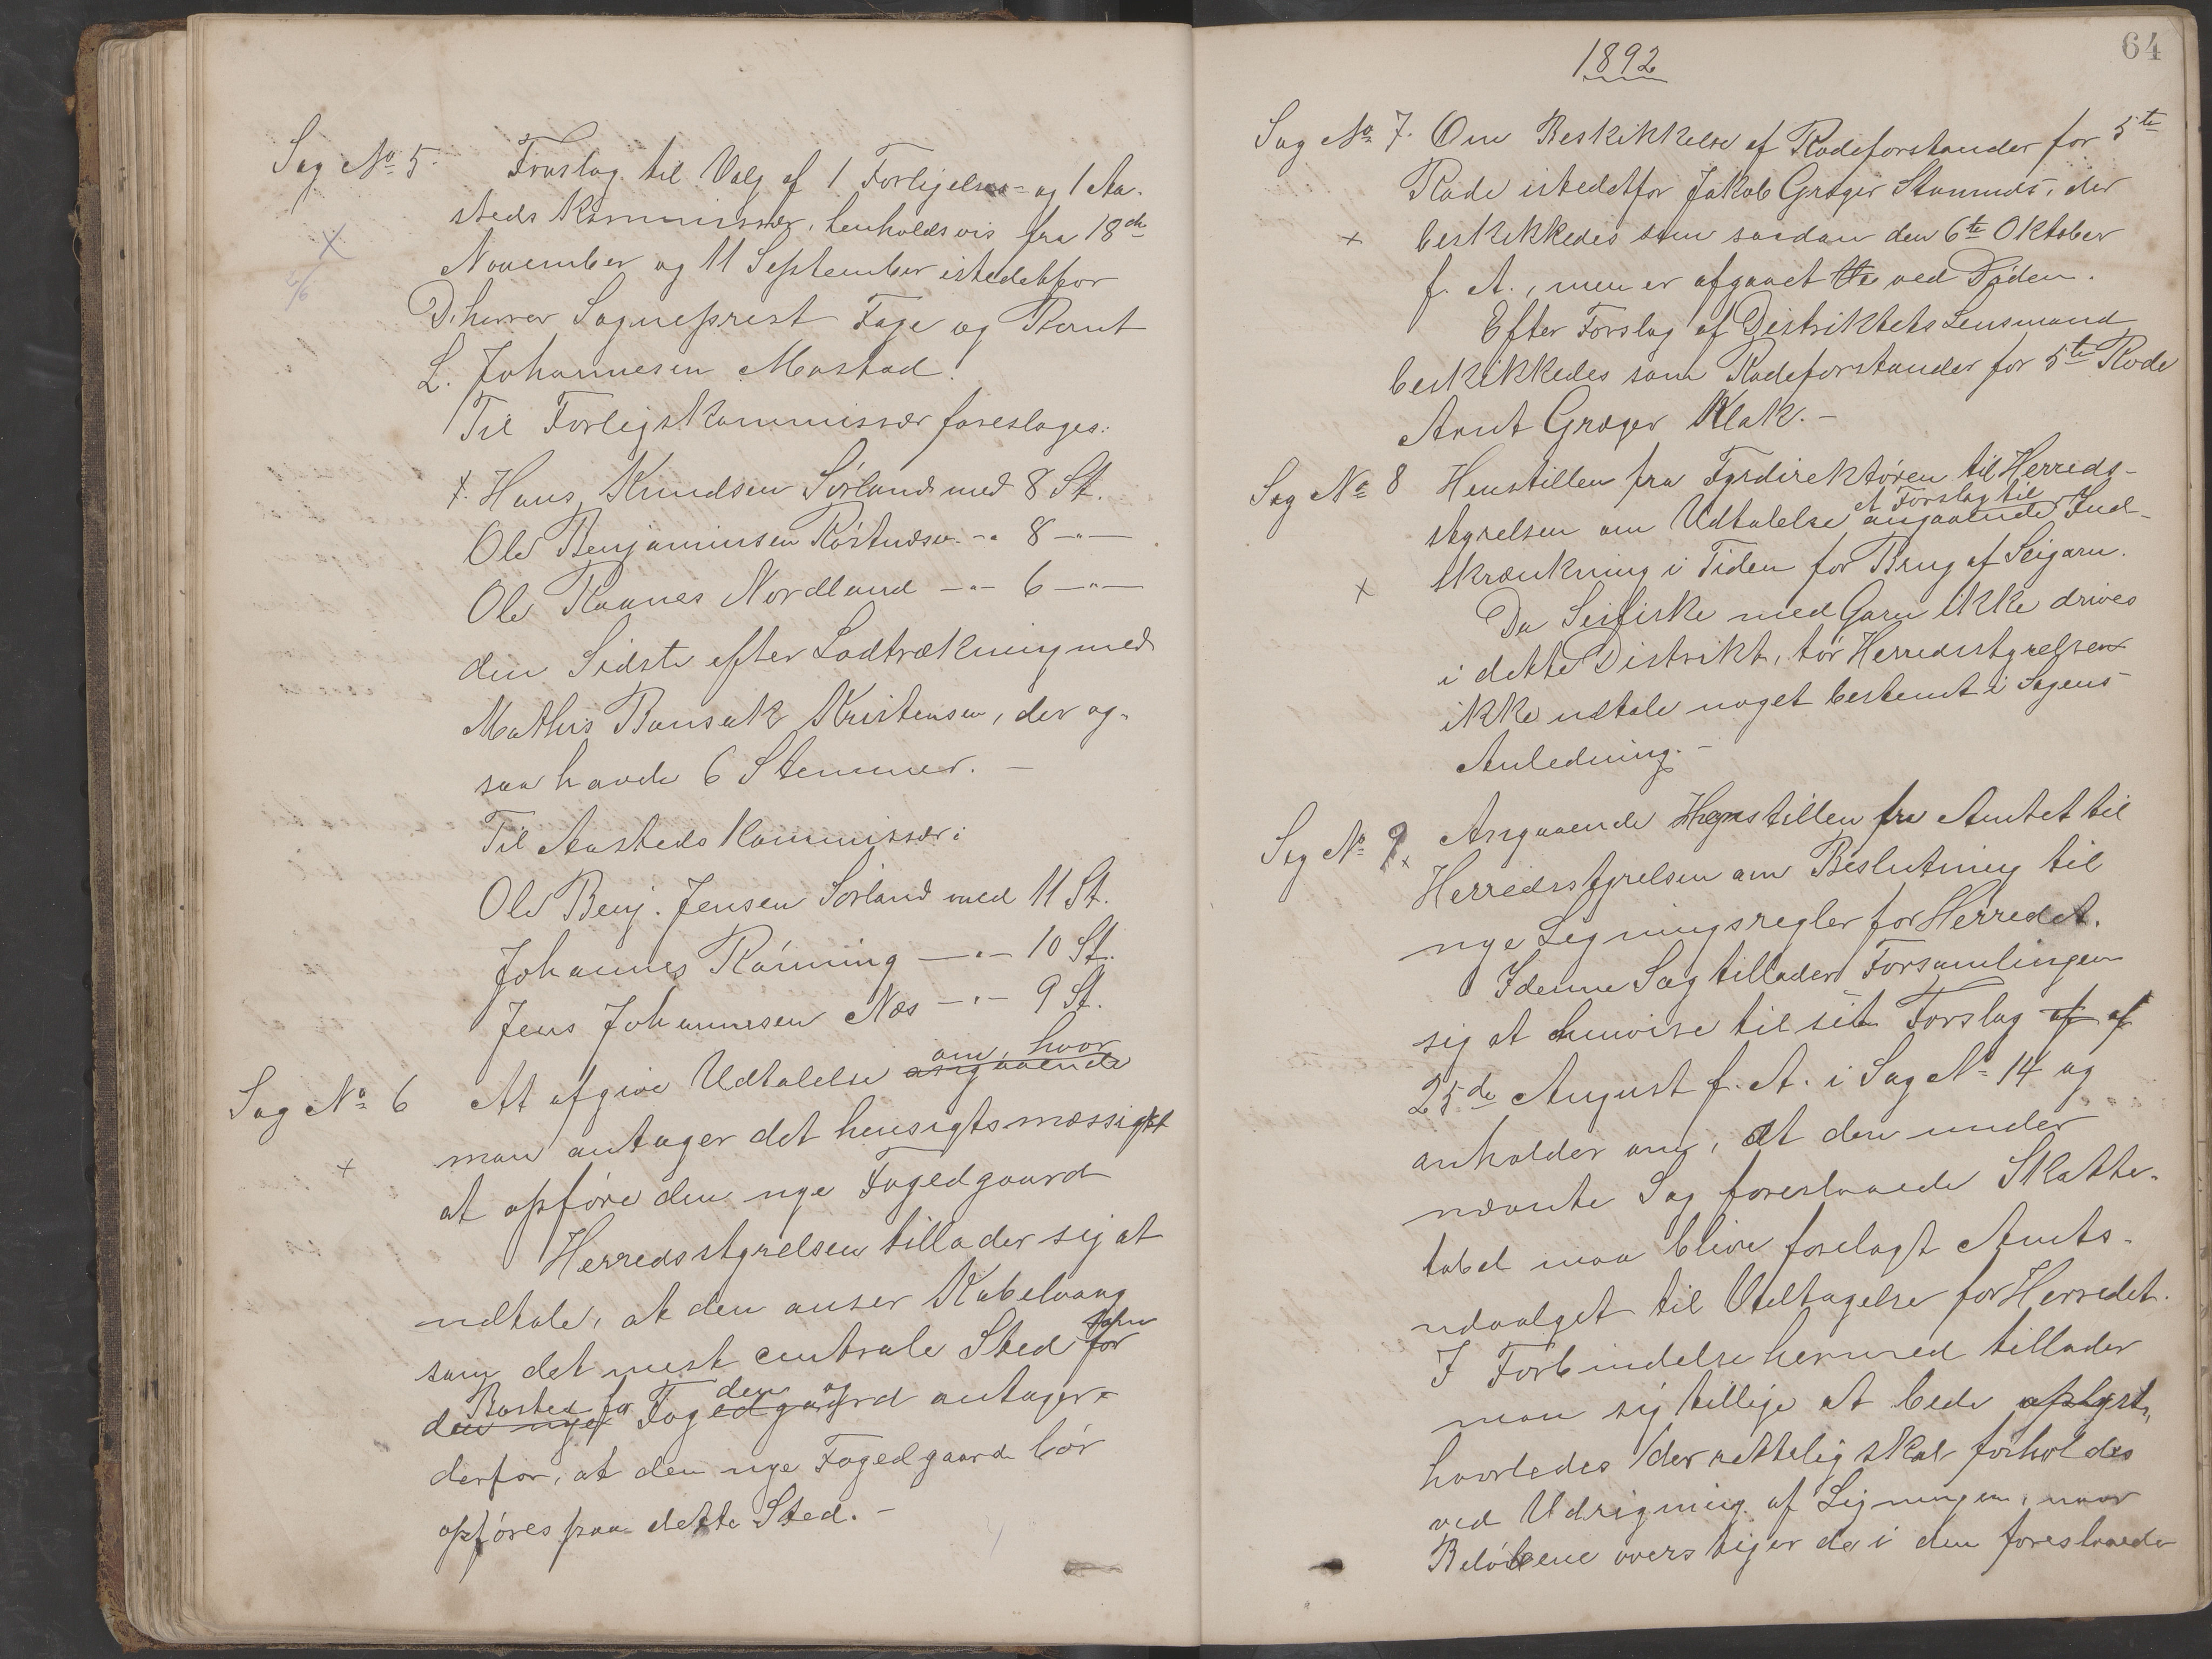 Sag No 5. Forslag til Valg af 1 Forligelses- og 1 Aa-
steds Kommissær, henholdsvis fra 18de
November og 11 September istedetfor
D'herrer Sogneprest Fage og Bernt
L. Johannesen Mostad.
Til Forligskommissær foreslages:
Hans Knudsen Sörland med 8 St.
Ole Benjaminsen Röstnæsv. -"- 8 -"-
Ole Raanes Nordland -"- 6 -"-
den Sidste efter Lodtrækning med
Mathis Bansak Kristensen, der og-
saa havde 6 Stemmer. -
Til Aasteds Kommissær:
Ole Benj. Jensen Sörland med 11 St.
Johannes Rönning -"- 10 St.
Jens Johannesen Næs -"- 9 St.
om, hvor
Sag No 6 At afgive Udtalelse angaaende
man antager det hensigtsmæssigst
x
at opföre den nye Fogedgaard
Herredsstyrelsen tillader sig at
udtale, at den anser Kabelvaag
som det mest centrale Sted som for
Bosted for den og
den nye Fogedgaard antager
derfor, at den nye Fogedgaard bör
opföres paa dette Sted. -
64
1892
Sag No 7. Om Beskikkelse af Rodeforstander for 5te
Rode istedetfor Jakob Grøger Stamnes, der
x beskikkedes som saadan den 6te Oktober
f. A., men er afgaaet ved Döden.
Efter Forslag af Distriktets Lensmand
beskikkedes som Rodeforstander for 5te Rode
Arnt Grøger Klak. -
Sag No 8 Henstillen fra Fyrdirektören til Herreds-
et Forslag til
styrelsen om Udtalelse angaaende Ind-
x skrænkning i Tiden for Brug af Seigarn.
Da Seifiske med Garn ikke drives
i dette Distrikt, tör Herredsstyrelsen
ikke udtale noget bestemt i Sagens
Anledning. -
Sag No 9 x Angaaende Henstillen fra Amtet til
Herredsstyrelsen om Beslutning til
nye Ligningsregler for Herredet.
I denne Sag tillader Forsamlingen
sig at henvise til sit Forslag af af
25de August f. A. i Sag No 14 og
anholder om, at den under
nævnte Sag foreslaaede Skatte-
tabel maa blive forelagt Amts-
udvalget til Vedtagelse for Herredet.
I Forbindelse hermed tillader
man sig tillige at bede oplyst,
hvorledes der rettelig skal forholdes
ved Udrigning af Ligningen, naar
Belöbene overstiger de i den foreslaaede